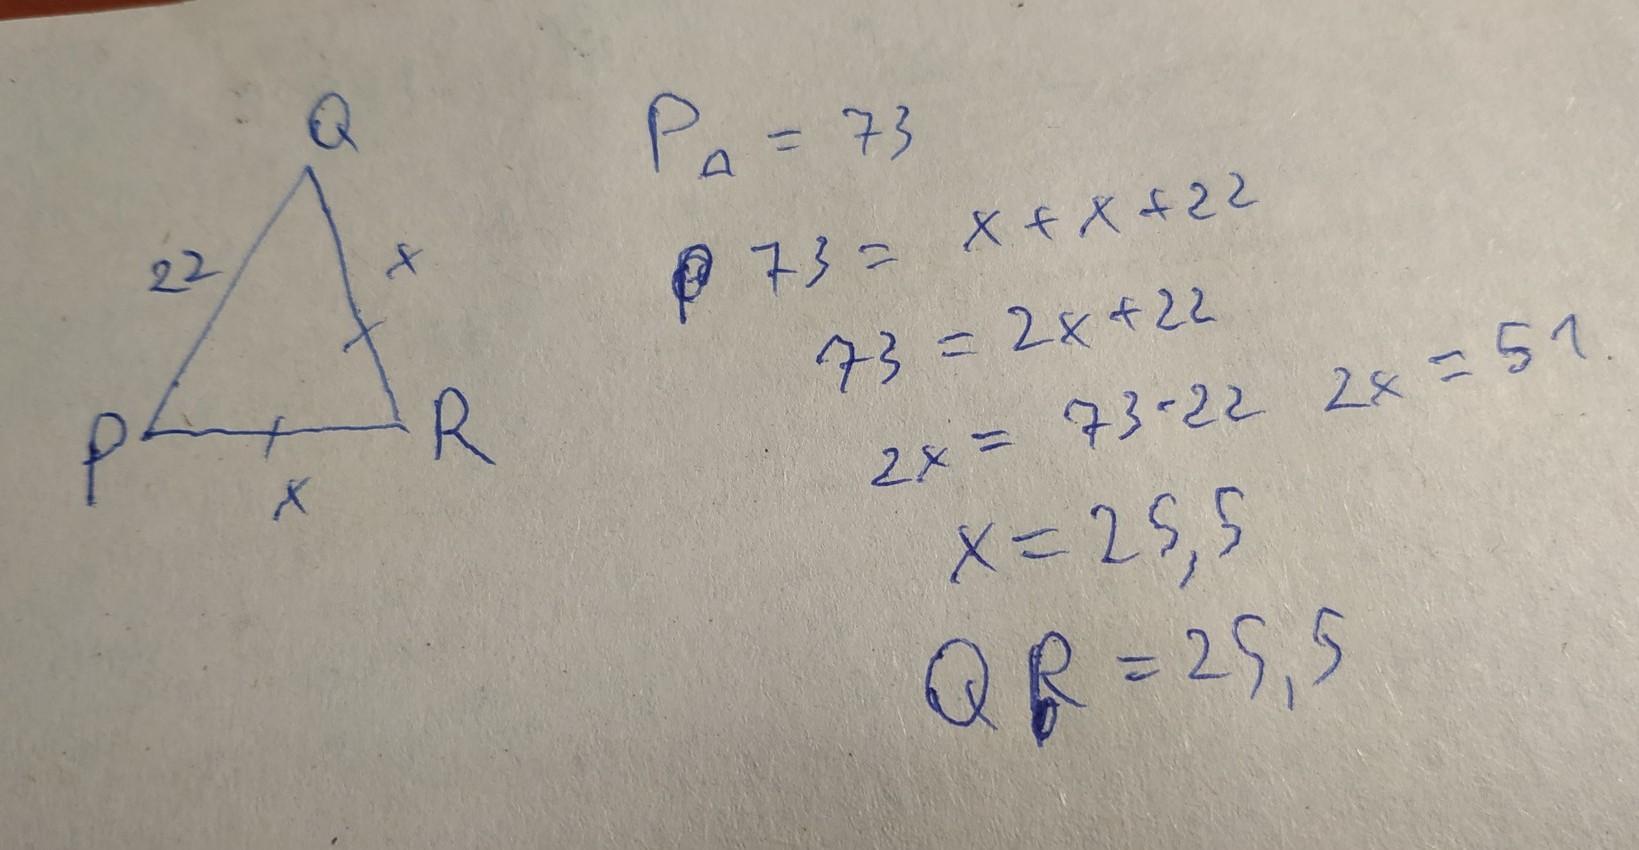 Q
22
x
P
R
x
P△ = 73
73 = x + x + 22
73 = 2x + 22
2x = 73 - 22 2x = 51.
x = 25,5
QR = 25,5